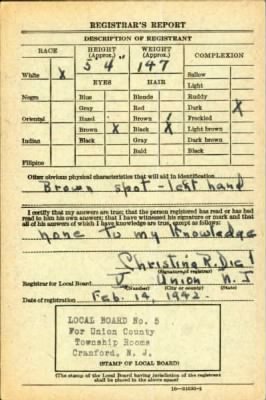 REGISTRAR'S REPORT
DESCRIPTION OF REGISTRANT
RACE HEIGHT (Approx.) WEIGHT (Approx.) COMPLEXION
5 4 147
White X Sallow
EYES HAIR Light
Negro Blue Blonde Ruddy
Gray Red Dark X
Oriental Hazel Brown Freckled
Brown X Black X Light brown
Indian Black Gray Dark brown
Bald Black
Filipino
Other obvious physical characteristics that will aid in identification
Brown spot - left hand
I certify that my answers are true; that the person registered has read or has had
read to him his own answers; that I have witnessed his signature or mark and that
all of his answers of which I have knowledge are true, except as follows:
none to my knowledge
Christina R.
(Signature of registrar)
Registrar for Local Board Union N. J
(Number) (City or county) (State)
Date of registration Feb. 14, 1942.
LOCAL BOARD No. 5
For Union County
Township Rooms
Cranford, N. J.
(STAMP OF LOCAL BOARD)
(The stamp of the Local Board having jurisdiction of the registrant
shall be placed in the above space)